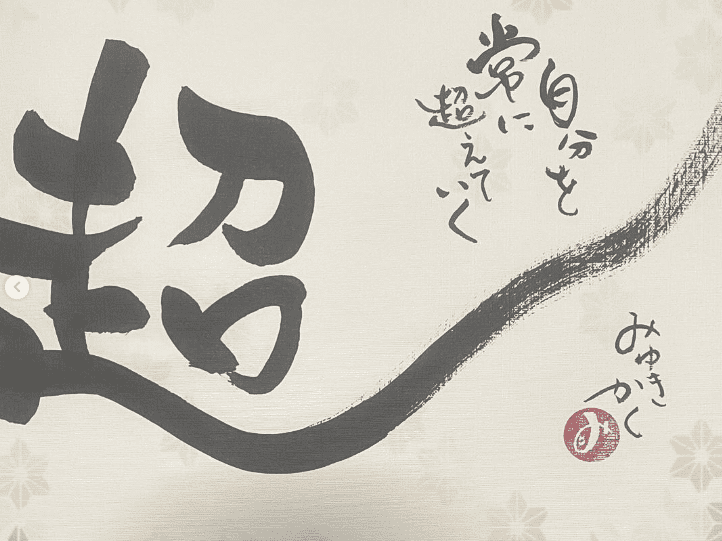 超
自分を
常に
超えていく
みゆき
かく
み